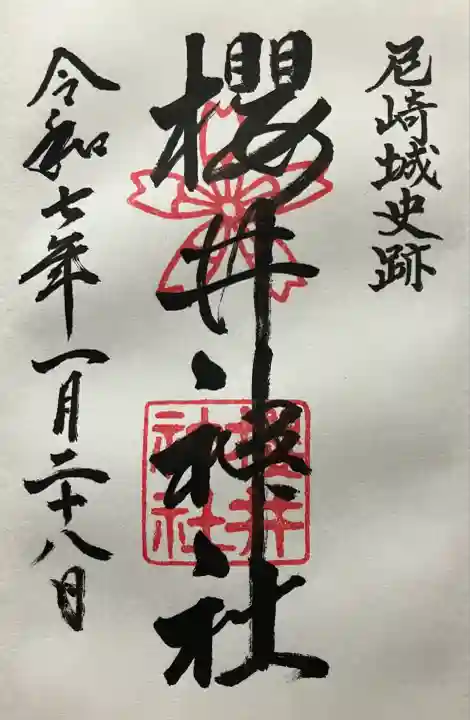 尼崎城史跡
櫻井神社
櫻井
神社
令和七年一月二十八日